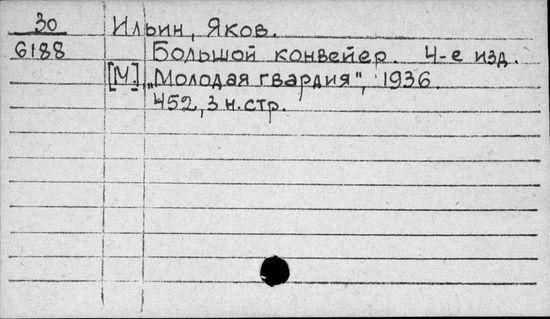 30 Ильин, Яков.
6188 Большой конвейер. 4-е изд.
[М.] „Молодая гвардия", 1936.
452, 3 н. стр.